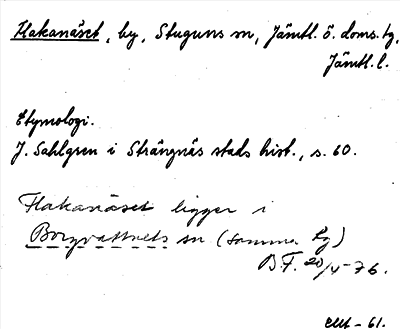 Flakanäset, by, Stuguns sn, Jämtl. ö. doms. tg,
Jämtl. l.
Etymologi.
J. Sahlgren i Strängnäs stads hist., s. 60.
Flakanäset ligger i
Borgvattnets sn (samma tg)
B.F. 20/5-76.
-61.